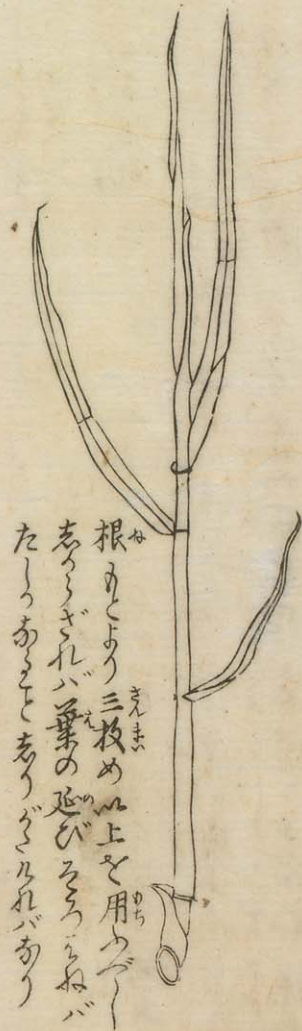 根もとより三枚め以上を用ふべし
志からざれバ葉の延びそろハねバ
たしかなること志りがたけれバなり